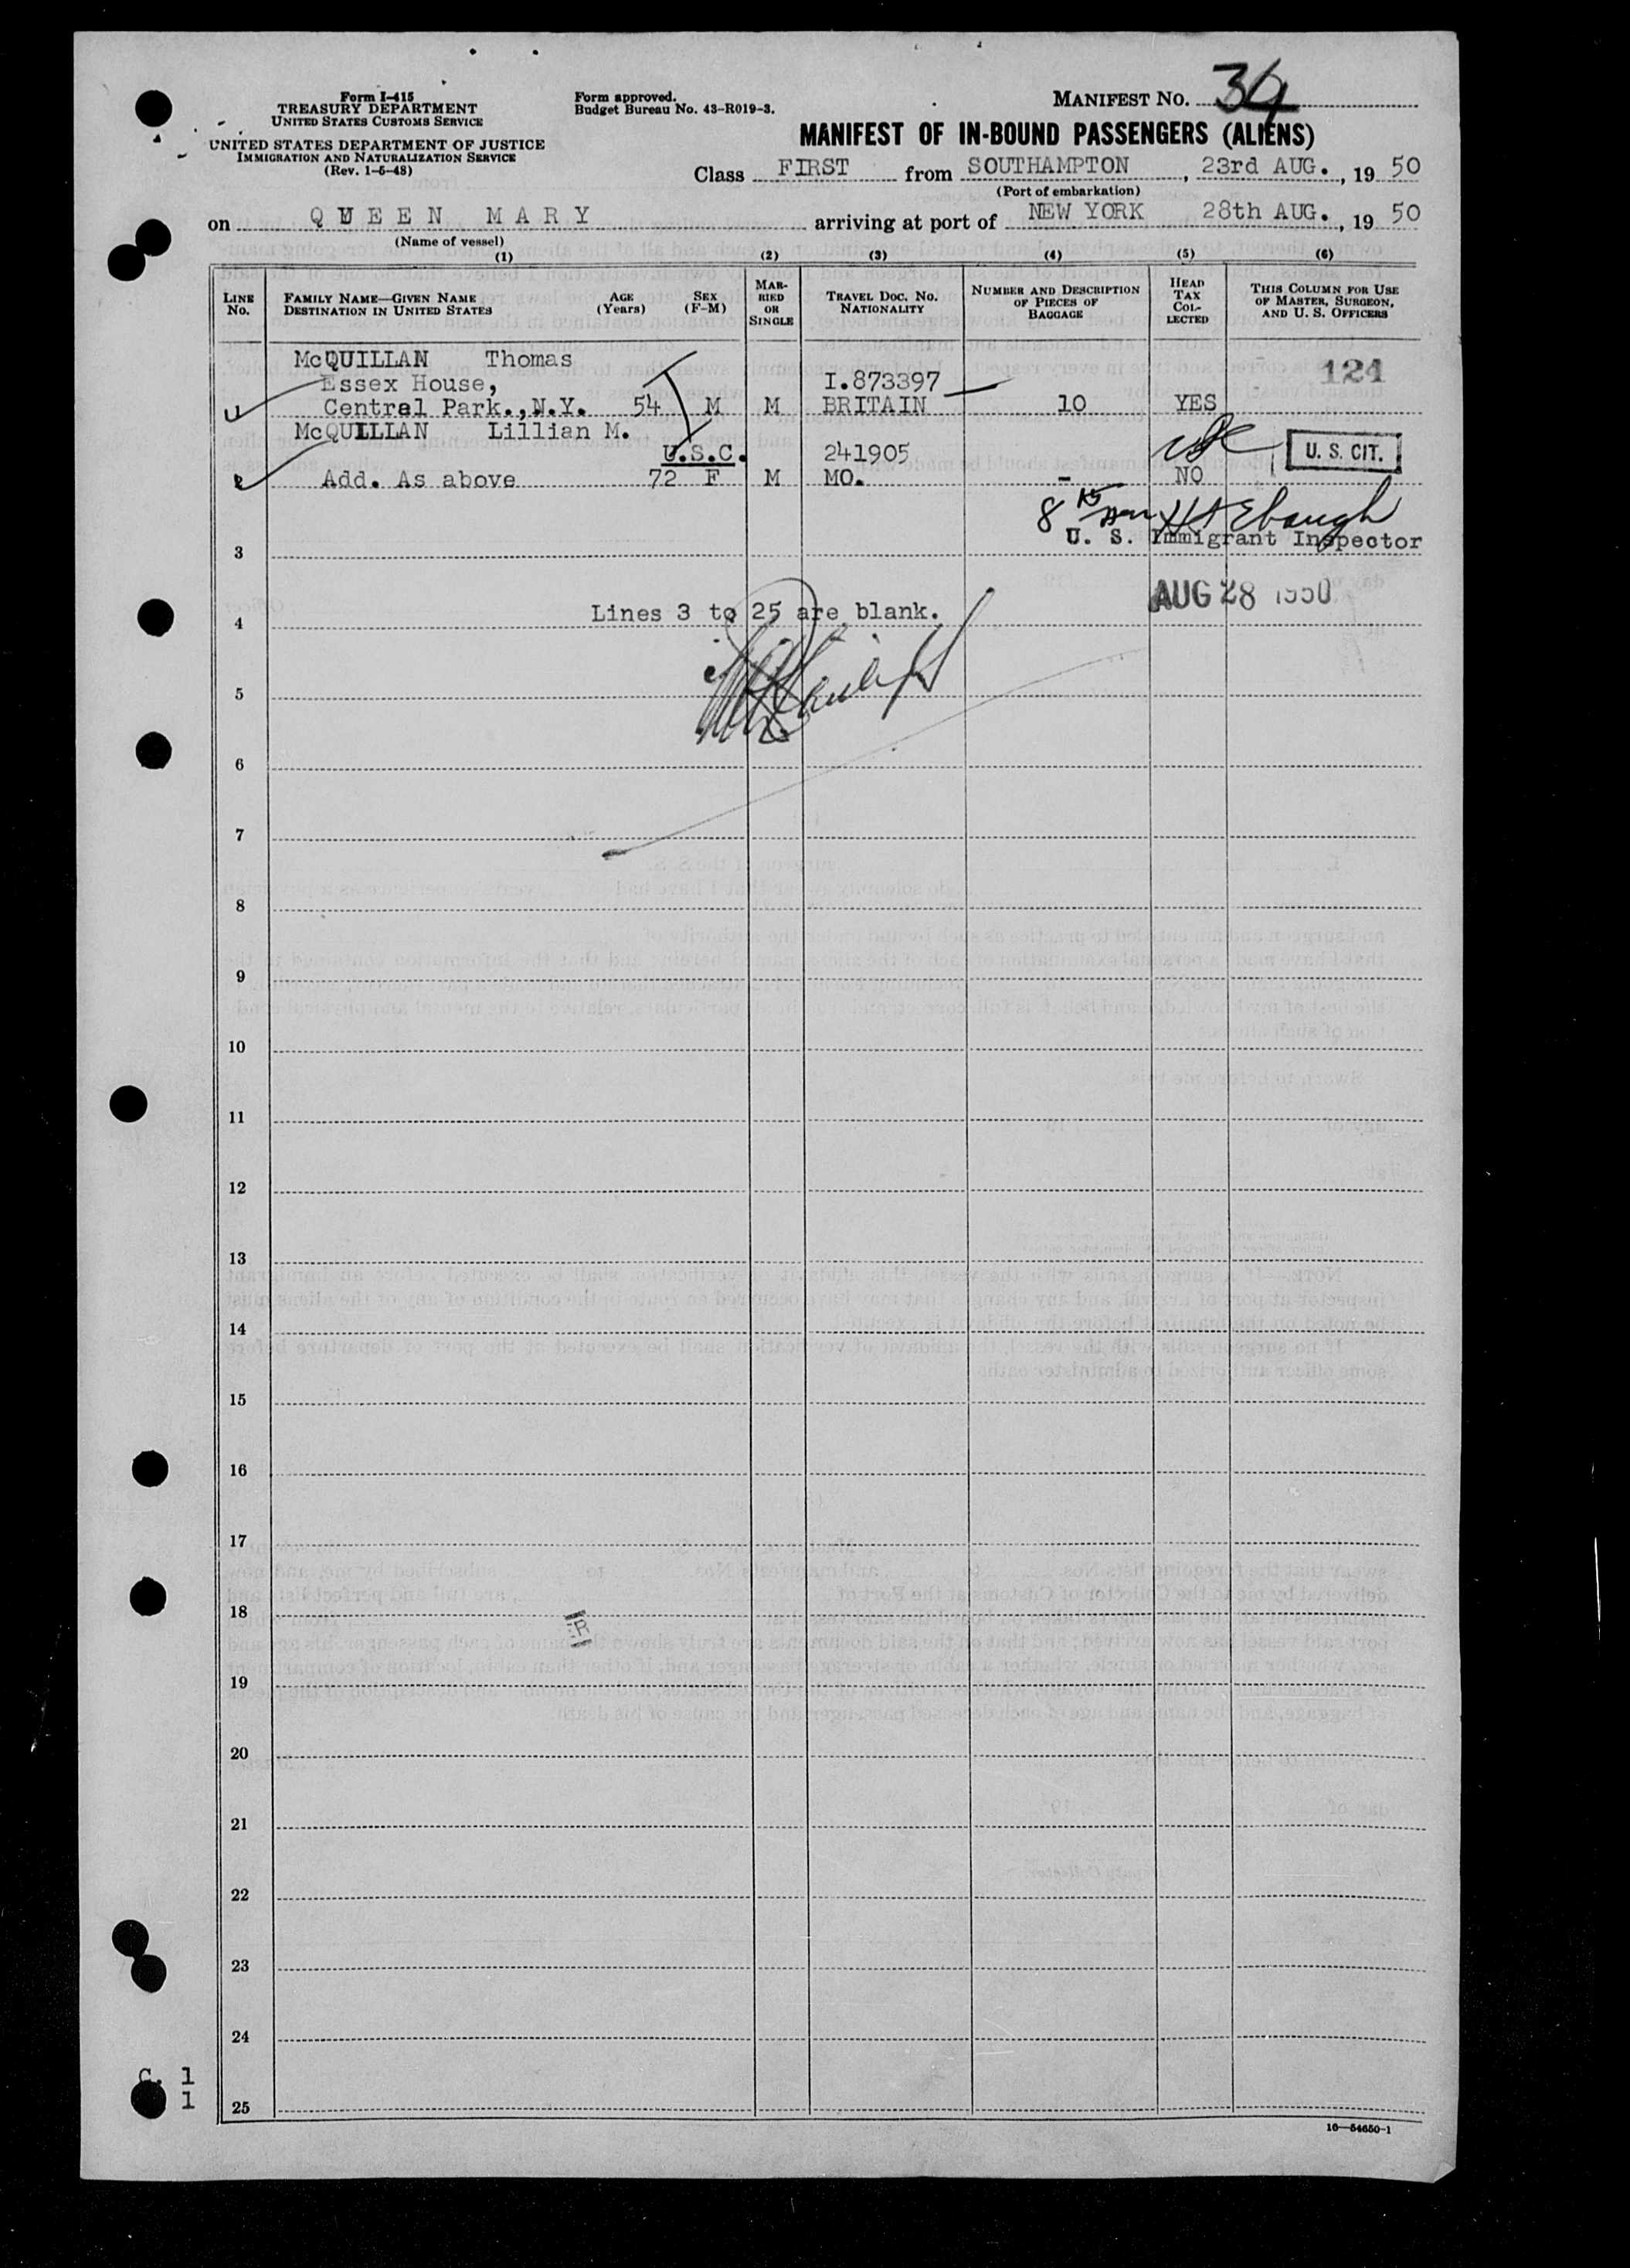 Form I-415
TREASURY DEPARTMENT
UNITED STATES CUSTOMS SERVICE
UNITED STATES DEPARTMENT OF JUSTICE
IMMIGRATION AND NATURALIZATION SERVICE
(Rev. 1-5-48)
Form approved.
Budget Bureau No. 43-R019-3.
MANIFEST No. 34
MANIFEST OF IN-BOUND PASSENGERS (ALIENS)
Class FIRST from SOUTHAMPTON, 23rd AUG., 19 50
(Port of embarkation)
on QUEEN MARY arriving at port of NEW YORK 28th AUG., 19 50
(Name of vessel)
(1) (2) (3) (4) (5) (6)
LINE No. FAMILY NAME—GIVEN NAME DESTINATION IN UNITED STATES AGE (Years) SEX (F-M) MARRIED OR SINGLE TRAVEL DOC. NO. NATIONALITY NUMBER AND DESCRIPTION OF PIECES OF BAGGAGE HEAD TAX COLLECTED THIS COLUMN FOR USE OF MASTER, SURGEON, AND U. S. OFFICERS
McQUILLAN Thomas 124
Essex House, I.873397
Central Park., N.Y. 54 M M BRITAIN 10 YES
McQUILLAN Lillian M.
U.S.C. 241905 U. S. CIT.
Add. As above 72 F M MO. - NO
8 15
U. S. Immigrant Inspector
3
AUG 28 1950
Lines 3 to 25 are blank.
4
5
6
7
8
9
10
11
12
13
14
15
16
17
18
R
19
20
21
22
23
24
C. 1
1
25
16—54650-1